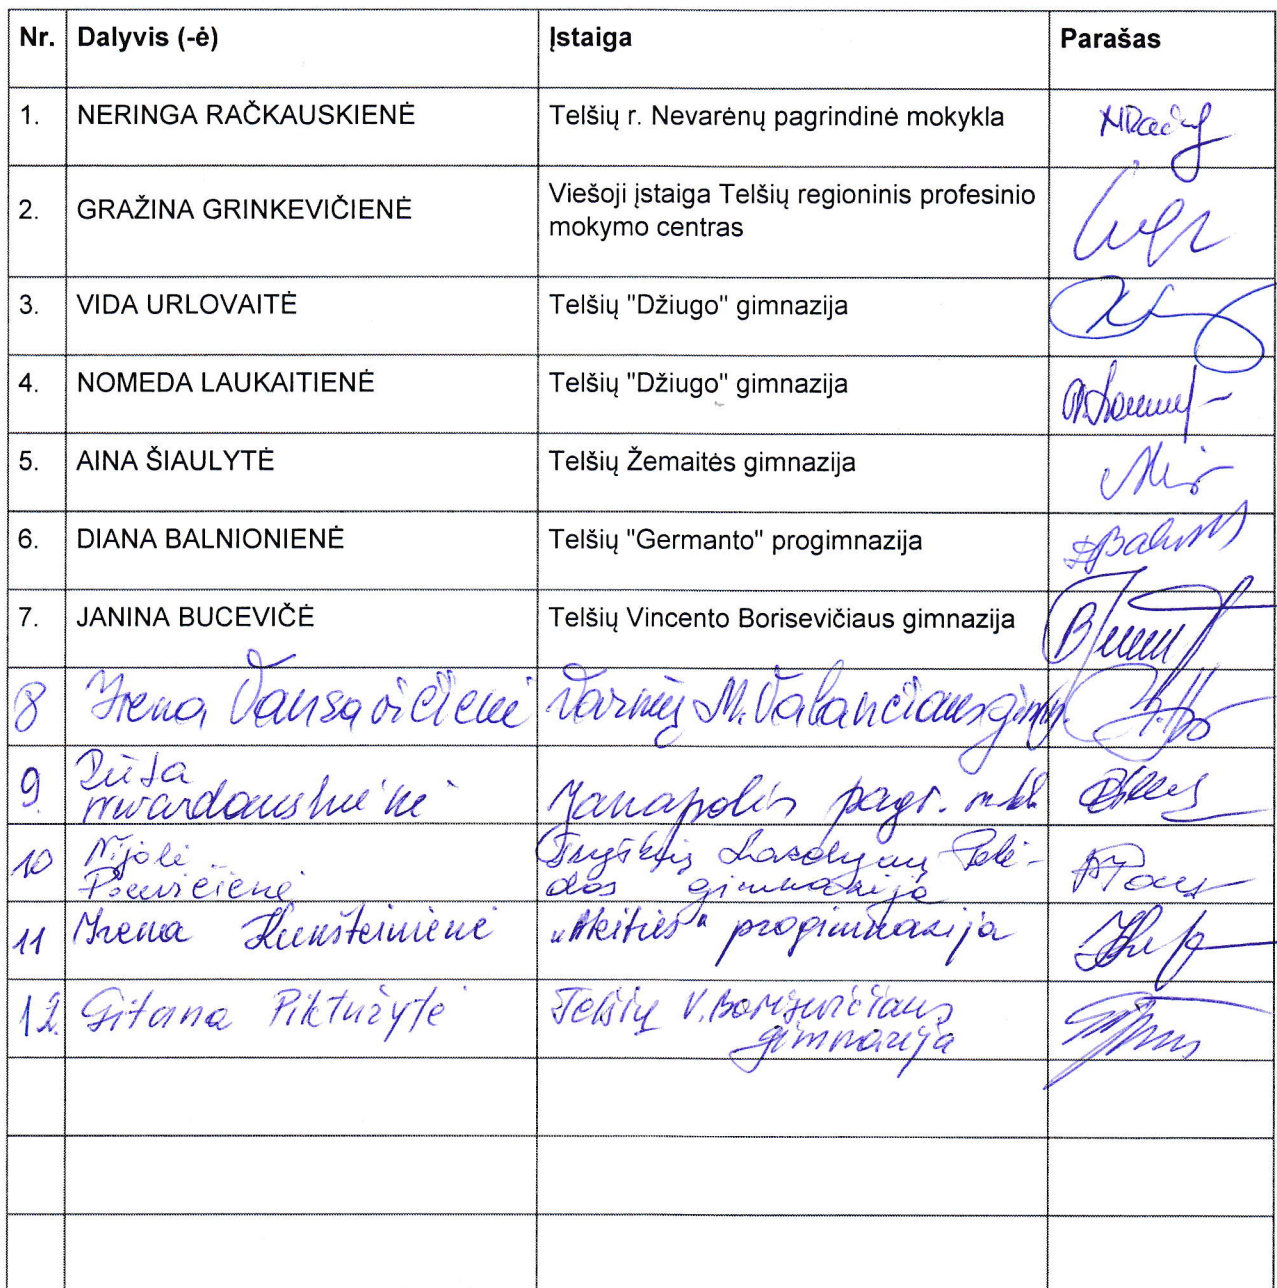 Nr. Dalyvis (-ė) Įstaiga Parašas
1. NERINGA RAČKAUSKIENĖ Telšių r. Nevarėnų pagrindinė mokykla
2. GRAŽINA GRINKEVIČIENĖ Viešoji įstaiga Telšių regioninis profesinio
mokymo centras
3. VIDA URLOVAITĖ Telšių "Džiugo" gimnazija
4. NOMEDA LAUKAITIENĖ Telšių "Džiugo" gimnazija
5. AINA ŠIAULYTĖ Telšių Žemaitės gimnazija
6. DIANA BALNIONIENĖ Telšių "Germanto" progimnazija
7. JANINA BUCEVIČĖ Telšių Vincento Borisevičiaus gimnazija
8 Irena Vansavičienė Varnių M. Valančiaus gimn.
9. Rūta
Janapolės pagr. mokl
10 Nijolė Tryškių Lazdynų Pelė-
dos gimnazija
11 Irena Kunšteinienė „Ateities" progimnazija
12. Gitana Pikturžytė Telšių V. Borisevičiaus
gimnazija